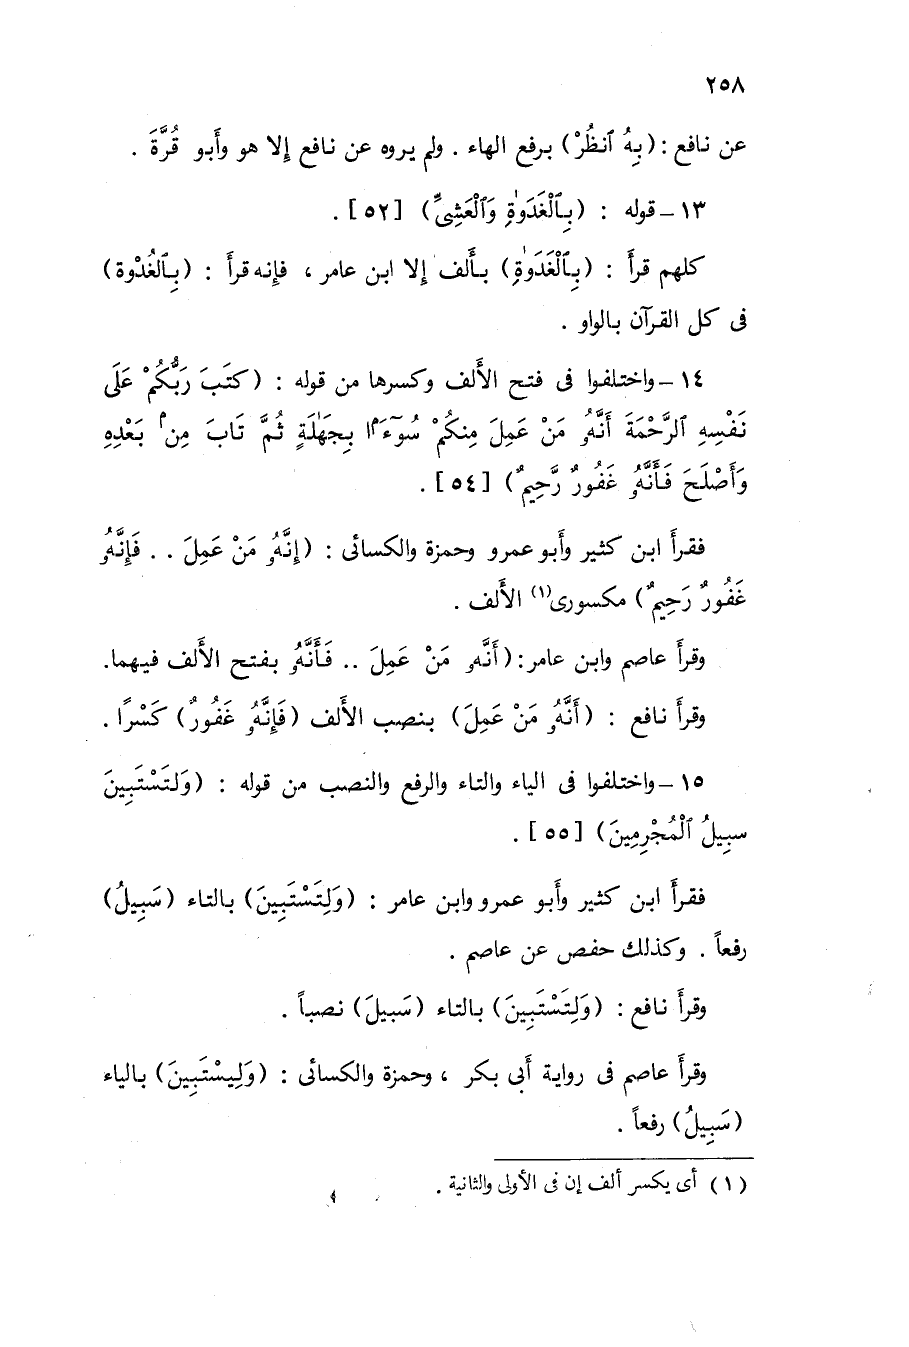 ٢٥٨
عن نافع : (بِهُ ٱنظُرْ) برفع الهاء . ولم يروه عن نافع إلا هو وأَبو قُرَّةَ .
١٣ – قوله : (بِٱلْغَدَوٰةِ وَٱلْعَشِىِّ) [٥٢] .
كلهم قرأَ : (بِٱلْغَدَوٰةِ) بأَلف إلا ابن عامر ، فإنه قرأَ : (بِٱلْغُدْوة)
فى كل القرآن بالواو .
١٤ – واختلفوا فى فتح الأَلف وكسرها من قوله : (كَتَبَ رَبُّكُمْ عَلَى
نَفْسِهِ ٱلرَّحْمَةَ أَنَّهُۥ مَنْ عَمِلَ مِنكُمْ سُوٓءَۢا بِجَهَٰلَةٍ ثُمَّ تَابَ مِنۢ بَعْدِهِ
وَأَصْلَحَ فَأَنَّهُۥ غَفُورٌ رَّحِيمٌ) [٥٤] .
فقرأَ ابن كثير وأَبو عمرو وحمزة والكسائى : (إِنَّهُۥ مَنْ عَمِلَ . . فَإِنَّهُۥ
غَفُورٌ رَحِيمٌ) مكسورى(١) الأَلف .
وقرأَ عاصم وابن عامر : (أَنَّهُۥ مَنْ عَمِلَ .. فَأَنَّهُۥ) بفتح الأَلف فيهما.
وقرأَ نافع : (أَنَّهُۥ مَنْ عَمِلَ) بنصب الأَلف (فَإِنَّهُۥ غَفُورٌ) كَسْرًا .
١٥ – واختلفوا فى الياء والتاء والرفع والنصب من قوله : (وَلِتَسْتَبِينَ
سبِيلُ ٱلْمُجْرِمِينَ) [٥٥] .
فقرأَ ابن كثير وأَبو عمرو وابن عامر : (وَلِتَسْتَبِينَ) بالتاء (سَبِيلُ)
رفعاً . وكذلك حفص عن عاصم .
وقرأَ نافع : (وَلِتَسْتَبِينَ) بالتاء (سَبيلَ) نصباً .
وقرأَ عاصم فى رواية أَبى بكر ، وحمزة والكسائى : (وَلِيسْتَبِينَ) بالياء
(سَبِيلُ) رفعاً .
(١) أى يكسر ألف إن فى الأولى والثانية .